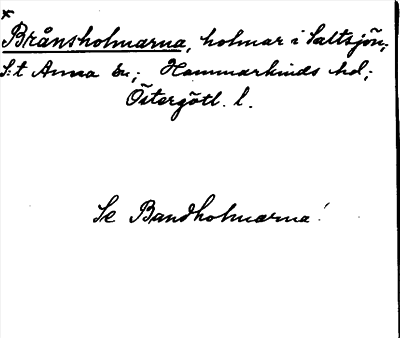 ×
Brånsholmarna, holmar i Saltsjön;
S:t Anna sn; Hammarkinds hd;
Östergötl. l.
Se Bandholmarna!